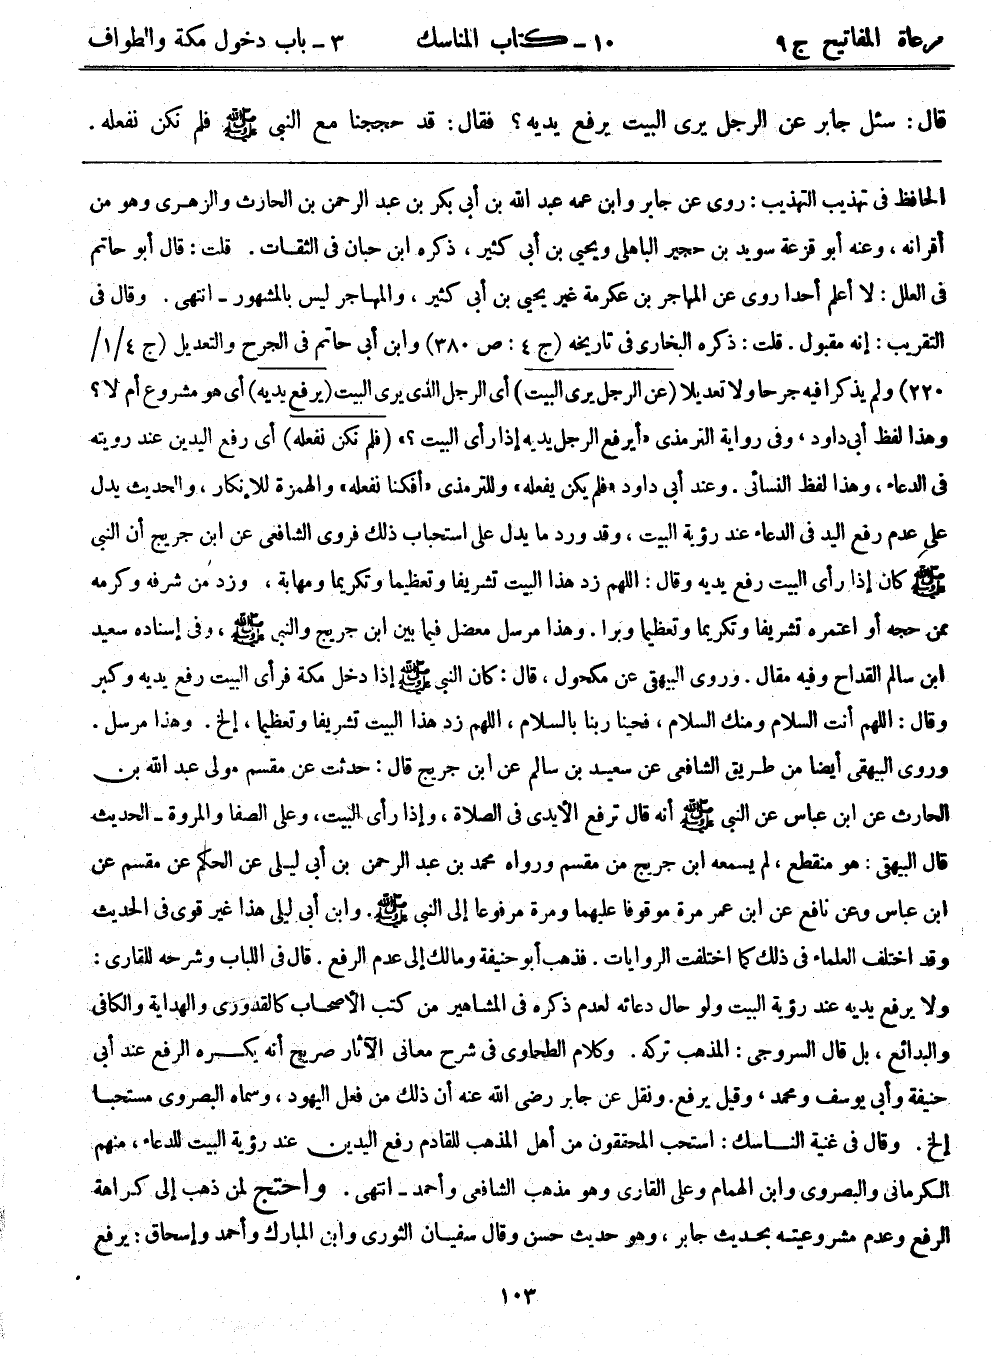 مرعاة المفاتيح ج ٩ ١٠ـ كتاب المناسك ٣ ـ باب دخول مكة والطواف
قال : سئل جابر عن الرجل يرى البيت يرفع يديه ؟ فقال : قد حججنا مع النبي ﷺ فلم نكن نفعله .
الحافظ فى تهذيب التهذيب : روى عن جابر وابن عمه عبد الله بن أبي بكر بن عبد الرحمن بن الحارث والزهرى وهو من
أقرانه ، وعنه أبو قزعة سويد بن حجير الباهلي ويحيى بن أبي كثير ، ذكره ابن حبان فى الثقات . قلت : قال أبو حاتم
فى العلل : لا أعلم أحدا روى عن المهاجر بن عكرمة غير يحيى بن أبي كثير ، والمهاجر ليس بالمشهور ـ انتهى . وقال فى
التقريب : إنه مقبول . قلت : ذكره البخارى فى تاريخه (ج ٤ : ص ٣٨٠) وابن أبي حاتم فى الجرح والتعديل (ج ٤/١/
٢٢٠) ولم يذكرا فيه جرحا ولا تعديلا (عن الرجل يرى البيت) أى الرجل الذى يرى البيت (يرفع يديه) أى هو مشروع أم لا ؟
وهذا لفظ أبى داود ، وفى رواية الترمذى «أيرفع الرجل يديه إذا رأى البيت ؟» (فلم نكن نفعله) أى رفع اليدين عند رويته
فى الدعاء ، وهذا لفظ النسائى . وعند أبي داود «فلم يكن يفعله» وللترمذى «أفكنا نفعله» والهمزة للإنكار ، والحديث يدل
على عدم رفع اليد فى الدعاء عند رؤية البيت ، وقد ورد ما يدل على استحباب ذلك فروى الشافعى عن ابن جريج أن النبي
ﷺ كان إذا رأى البيت رفع يديه وقال : اللهم زد هذا البيت تشريفا وتعظيما وتكريما ومهابة ، وزد من شرفه وكرمه
ممن حجه أو اعتمره تشريفا وتكريما وتعظيما وبرا . وهذا مرسل معضل فيما بين ابن جريج والنبي ﷺ ، وفى إسناده سعيد
ابن سالم القداح وفيه مقال . وروى البيهقى عن مكحول ، قال : كان النبي ﷺ إذا دخل مكة فرأى البيت رفع يديه وكبر
وقال : اللهم أنت السلام ومنك السلام ، فحينا ربنا بالسلام ، اللهم زد هذا البيت تشريفا وتعظيما ، إلخ . وهذا مرسل .
وروى البيهقى أيضا من طريق الشافعى عن سعيد بن سالم عن ابن جريج قال : حدثت عن مقسم مولى عبد الله بن
الحارث عن ابن عباس عن النبي ﷺ أنه قال ترفع الأيدى فى الصلاة ، وإذا رأى البيت، وعلى الصفا والمروة ـ الحديث
قال البيهقى : هو منقطع ، لم يسمعه ابن جريج من مقسم ورواه محمد بن عبد الرحمن بن أبي ليلى عن الحكم عن مقسم عن
ابن عباس وعن نافع عن ابن عمر مرة موقوفا عليهما ومرة مرفوعا إلى النبي ﷺ . وابن أبي ليلى هذا غير قوى فى الحديث
وقد اختلف العلماء فى ذلك كما اختلفت الروايات . فذهب أبو حنيفة ومالك إلى عدم الرفع . قال فى اللباب وشرحه للقارى :
ولا يرفع يديه عند رؤية البيت ولو حال دعائه لعدم ذكره فى المشاهير من كتب الأصحاب كالقدورى والهداية والكافى
والبدائع ، بل قال السروجى : المذهب تركه . وكلام الطحاوى فى شرح معانى الآثار صريح أنه يكره الرفع عند أبي
حنيفة وأبي يوسف ومحمد ، وقيل يرفع. ونقل عن جابر رضى الله عنه أن ذلك من فعل اليهود ، وسماه البصروى مستحبا
إلخ . وقال فى غنية الناسك : استحب المحققون من أهل المذهب للقادم رفع اليدين عند رؤية البيت للدعاء ، منهم
الكرمانى والبصروى وابن الهمام وعلى القارى وهو مذهب الشافعى وأحمد ـ انتهى . واحتج لمن ذهب إلى كراهة
الرفع وعدم مشروعيته بحديث جابر ، وهو حديث حسن وقال سفيان الثورى وابن المبارك وأحمد وإسحاق : يرفع
١٠٣